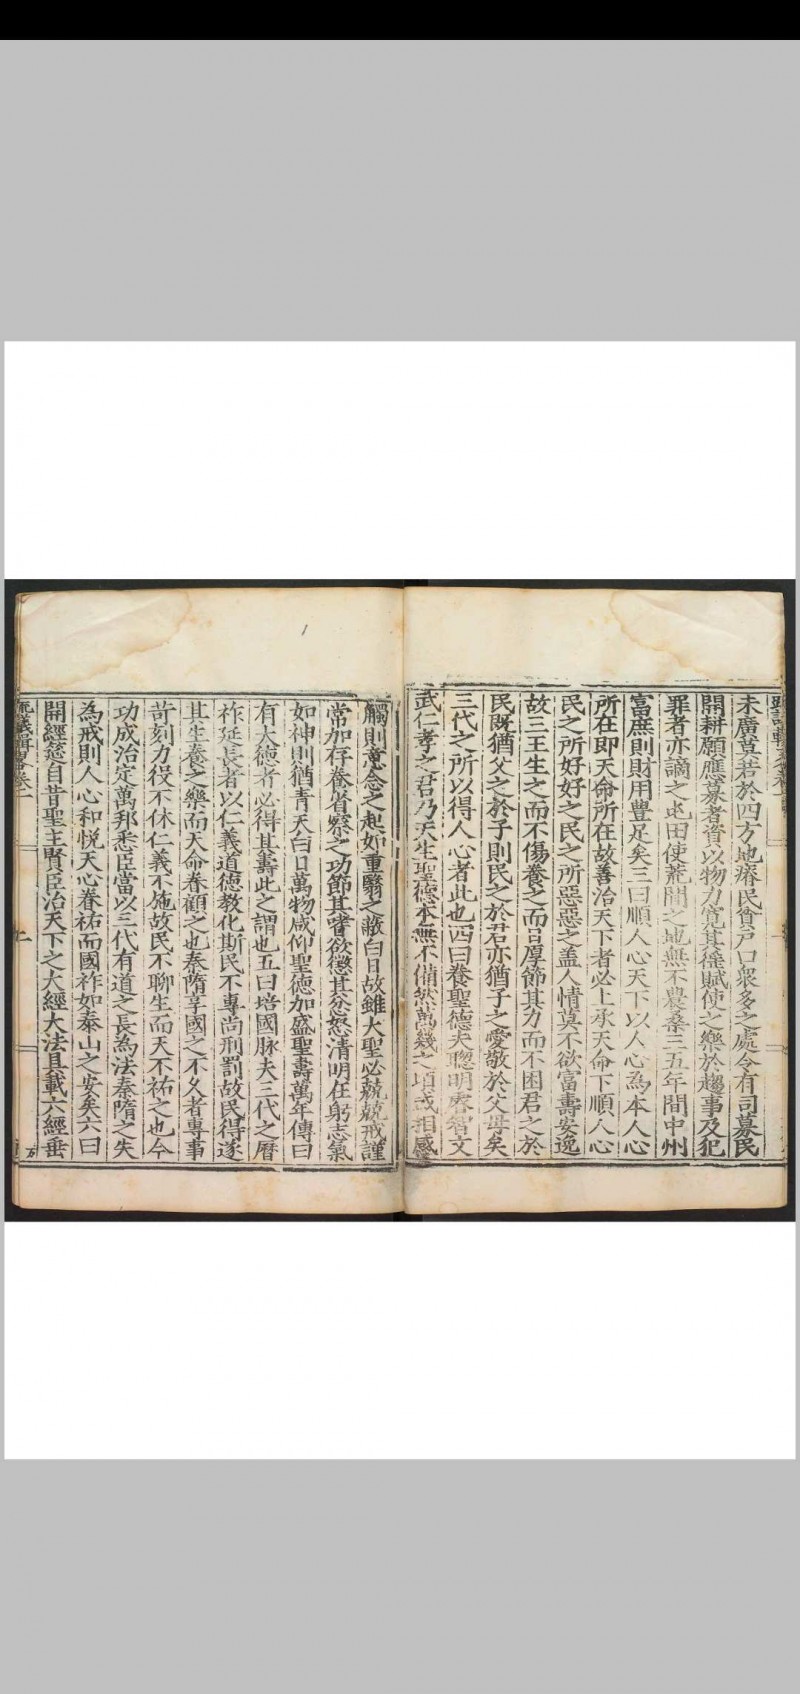 未廣莫若於四方地瘠民貧戶口衆多之處令有司募民
開耕願應募者資以物力寬其徭賦使之樂於趨事及犯
罪者亦謫之屯田使荒閒之地無不農桑三五年間中州
富庶則財用豊足矣三曰順人心天下以人心為本人心
所在即天命所在故善治天下者必上承天命下順人心
民之所好好之民之所惡惡之盖人情莫不欲富壽安逸
故三王生之而不傷養之而厚節其力而不困君之於
民既猶父之於子則民之於君亦猶子之愛敬於父母矣
三代之所以得人心者此也四曰養聖德夫聰明睿智文
武仁孝之君乃天生聖德本無不備然萬幾之項或相感
觸則意念之起如重翳之蔽白日故雖大聖必兢兢戒謹
常加存養省察之功節其嗜欲懲其忿怒清明在躬志氣
如神則猶青天白日萬物咸仰聖德加盛聖壽萬年傳曰
有大德者必得其壽此之謂也五曰培國脉夫三代之曆
祚延長者以仁義道德教化斯民不專尚刑罰故民得遂
其生養之樂而天命眷顧之也秦隋享國之不久者專事
苛刻力役不休仁義不施故民不聊生而天不祐之也今
功成治定萬邦悉臣當以三代有道之長為法秦隋之失
為戒則人心和悅天心眷祐而國祚如泰山之安矣六曰
開經筵自昔聖主賢臣治天下之大經大法具載六經垂